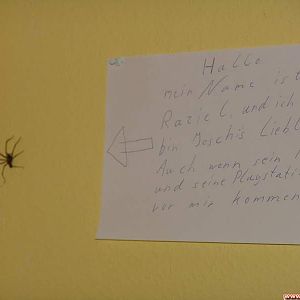 Hallo
mein Name ist
Raziel, und ich
bin Joschis Liebl
Auch wenn sein
und seine Playstati
vor mir kommen
www